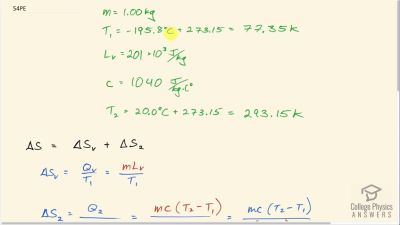 54PE
m = 1.00 kg
T₁ = -195.8°C + 273.15 = 77.35 K
Lᵥ = 201 × 10³ J/kg
c = 1040 J/kg·C°
T₂ = 20.0°C + 273.15 = 293.15 K
ΔS = ΔSᵥ + ΔS₂
ΔSᵥ = Qᵥ/T₁ = mLᵥ/T₁
ΔS₂ = Q₂ = mc(T₂-T₁) = mc(T₂-T₁)
College Physics
ANSWERS